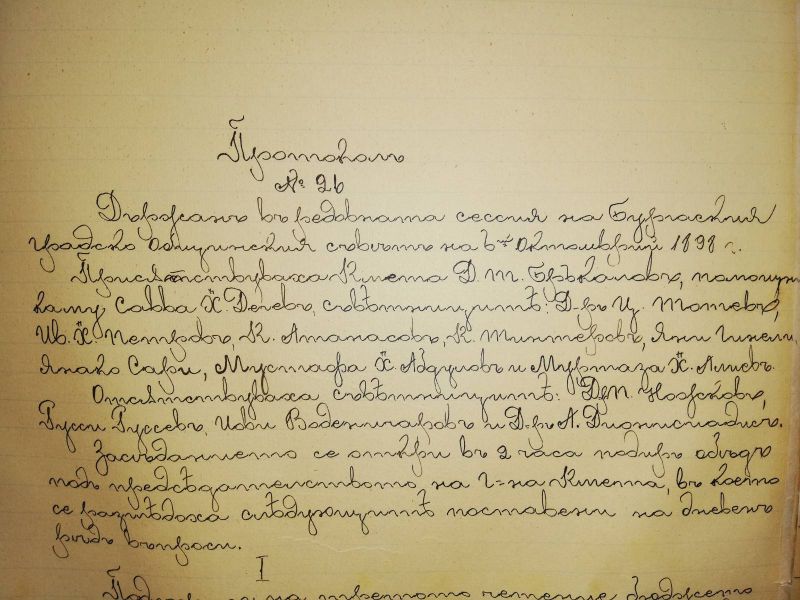 Протоколъ
№ 26
Държанъ въ редовната сессия на Бургаския
градско Общински съвѣтъ на 6ий Октомврий 1898 г.
Присѫтствуваха Кмета Д. П. Бръкаловъ, помощни-
ка му Савва Х. Дечевъ, съвѣтницитѣ: Д-ръ Ц. Тотевъ,
Ив. Х. Петровъ, К. Атанасовъ, К. Тинтеровъ, Яни
Янако Сари, Мустафа Х. Абдуловъ и Муртаза Х. Алиевъ.
Отсѫтствуваха съвѣтницитѣ: Норжовъ,
Русси Руссевъ, Иови Воденичаровъ и Д-ръ А. Дионисиадисъ.
Засѣданието се откри въ 2 часа подиръ обѣдъ
подъ предсѣдателството на г-на Кмета, въ което
се разглѣдоха слѣдующитѣ поставени на дневенъ
рѣдъ въпроси.
I
на третото четение бюджето